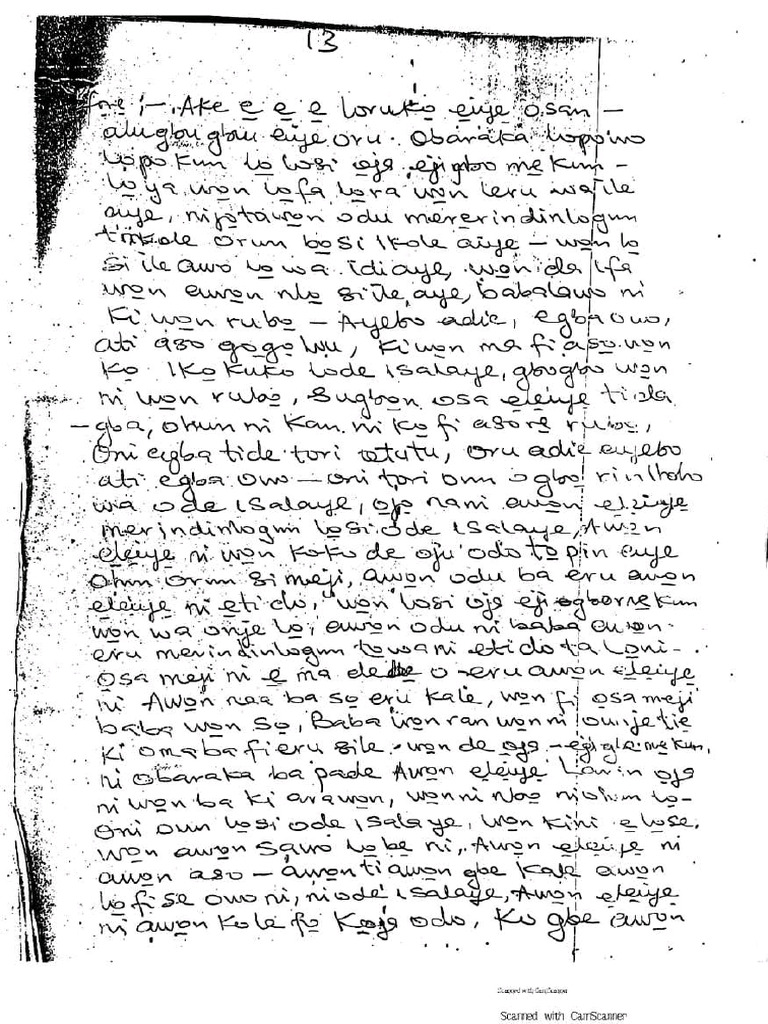 13
fore ;- Ake e̱ e̱ e̱ loruko̱ eiye o̱san -
alugbugbu eiye oru. O̱baraka lo̱po̱wo
lo̱po̱kun lo̱ lo̱si o̱jo̱ ejigbo me̱kun -
lo̱ ya wo̱n lo̱fa lo̱ra wo̱n leru wa ile
aiye, nijo̱tawo̱n odu mererindinlogun
ti̱kole o̱run bo̱ si Ikole aiye - wo̱n lo̱
si ile awo lo̱ wa idiaye, wo̱n da Ifa
wo̱n awo̱n nlo̱ si ile aye, babalawo ni
ki wo̱n rubo̱ - Ayebo̱ adie̱, e̱gba owo,
ati aso̱ gogowu, ki wo̱n ma fi aso̱ wo̱n
ko̱ Iko̱kuko̱ lode isalaye, gbogbo wo̱n
ni wo̱n rubo̱, Sugbo̱n o̱sa e̱le̱iye ti o̱la
- gba, ohun ni kan ni ko fi aso̱re̱ rubo̱,
Oni e̱gba tide tori o̱tutu, oru adie̱ aiyebo
ati e̱gba owo - oni tori oun o̱gbo̱ rin ihoho
wa ode isalaye, o̱jo̱ nani awo̱n e̱le̱iye
merindinlogun lo̱si ode isalaye, Awo̱n
e̱le̱iye ni wo̱n ko̱ko̱ de oju odo to̱ pin aiye
ohun o̱run si meji, awo̱n odu ba eru awo̱n
e̱le̱iye ni eti do, wo̱n lo̱si o̱jo̱ ejiogbome̱kun
wo̱n wa onje̱ lo̱, awo̱n odu ni baba awo̱n
eru merindinlogun towa ni eti do ta loni -
o̱sa meji ni e̱ ma de o - eru awo̱n e̱le̱iye
ni Awo̱n naa ba so̱ eru kale̱, wo̱n fi o̱sa meji
baba wo̱n so̱, Baba wo̱n ran wo̱n ni owije tie̱
ki o ma ba fi eru sile̱ - wo̱n de o̱jo̱ - ejigbome̱kun,
ni o̱baraka ba pade Awo̱n e̱le̱iye Lo̱win o̱jo̱
ni wo̱n ba ki arawo̱n, wo̱n ni nbo̱ ni ohun lo̱ -
Oni oun lo̱si ode isalaye, wo̱n kini e̱ lo̱ se.
wo̱n awo̱n sawo lo̱be̱ ni, Awo̱n e̱le̱iye ni
awo̱n aso̱ - awo̱n ti awo̱n gbe kale̱ awo̱n
lo̱ fi se owo ni, ni ode isalaye, Awo̱n e̱le̱iye
ni awo̱n ko le fo̱ ko̱ja odo, ko gbe awo̱n
Scanned with CamScanner
Scanned with CamScanner